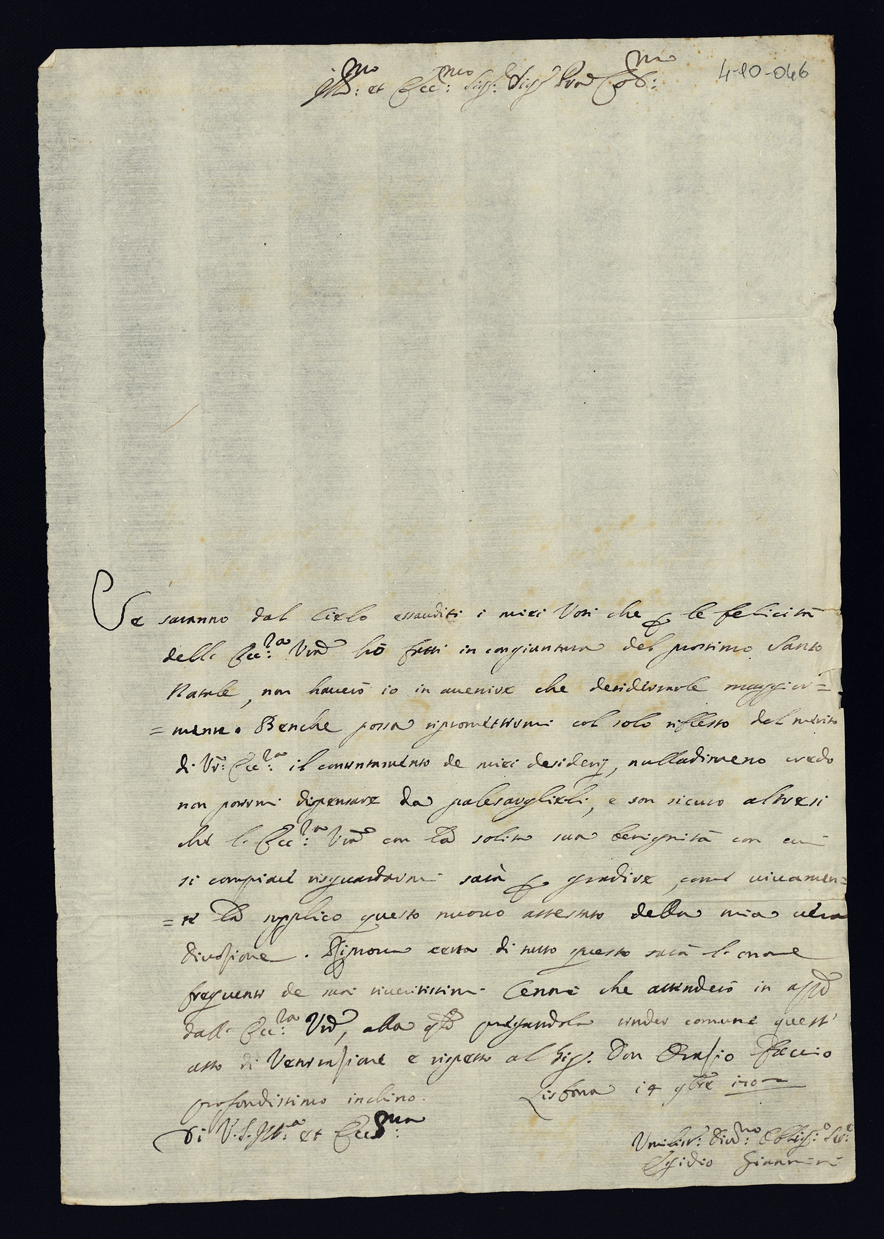 4-10-046
Ill.mo et Ecc.mo Sig.r Sig.r Pron Col.mo
Se saranno dal Cielo essauditi i miei Voti che p le felicità
dell' Ecc.za Vra hò fatti in congiuntura del prossimo Santo
Natale, non haverò io in avenire che desiderarle maggior=
=mente. Benche possa ripromettermi col solo riflesso del merito
di Vr. Ecc.za il contentamento de miei desiderij, nulladimeno credo
non potermi dispensare da palesarglieli, e son sicuro altresi
che l'Ecc.za Vra con la solita sua benignità con cui
si compiace risguardarmi sarà p gradire, come vivamen=
=te la supplico questo nuovo attestato della mia vera
divozione. Riprova certa di tutto questo sarà l'onore
frequente de suoi riveritissimi Cenni che attenderò in
dall' Ecc.za Vra, alla qle pregandola render comune quest'
atto di Venerazione e rispetto al Sig.r Don Orazio Faccio
profondissimo inchino.
Lisbona 14 9bre
Di V.S. Ill.ma et Ecc.ma
Umiliss. Div.mo Obblig.o Se.re
Egidio Giannini